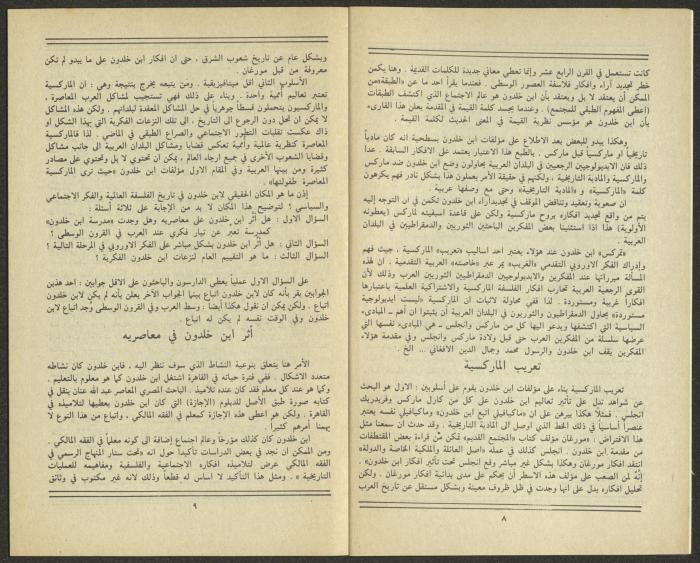 كانت تستعمل في القرن الرابع عشر وإنما تعطي معاني جديدة للكلمات القديمة . وهنا يكمن
خطر تجديد آراء وأفكار فلاسفة العصور الوسطى . فعندما يقرأ احد ما عن «الطبقة»من
الممكن أن يعتقد لا بل ويعتقد بأن ابن خلدون هو عالم الاجتماع الذي اكتشف الطبقات
(أعطى المفهوم الطبقي للمجتمع) . وعندما يجسد كلمة القيمة في المقدمة يعلن هذا القارىء
بأن ابن خلدون هو مؤسس نظرية القيمة في المعنى الحديث لكلمة القيمة .
وهكذا يبدو للبعض بعد الاطلاع على مؤلفات ابن خلدون بسطحية انه كان مادياً
تاريخياً او ماركسياً قبل ماركس . بالطبع هذا الاعتبار يعتمد على الافكار السابقة . عدا
ذلك فان الايديولوجيين الرجعيين في البلدان العربية يحاولون وضع ابن خلدون ضد ماركس
والماركسية والمادية التاريخية ، ولكنهم في حقيقة الأمر يعملون هذا بشكل نادر فهم يكرهون
كلمة «الماركسية» و «المادية التاريخية» وحتى مع وصفها عربية .
ان صعوبة وتعقيد وتناقض الموقف في تجديدآراء ابن خلدون تكمن في ان التوجه إليه
يتم من واقع تجديد افكاره بروح ماركسية ولكن على قاعدة اسبقيته لماركس (يعطونه
الأولوية) هذا اذا استثنينا بعض المفكرين الباحثين الثوريين والديمقراطيين في البلدان
العربية .
«تمركس» ابن خلدون عند هؤلاء يعتبر احد اساليب «تعريب» الماركسية . جيث فهم
وإدراك الفكر الاوروبي التقدمي «الغريب» يمر عبر «خاصته» العربية التقدمية . ان هذه
المسألة مبرراتها عند المفكرين والايديولوجيين الديمقراطيين الثوريين العرب وذلك لأن
القوى الرجعية العربية تحارب افكار الفلسفة الماركسية والاشتراكية العلمية باعتبارها
افكاراً غريبة ومستوردة . لذا ففي محاولة لاثبات ان الماركسية «ليست ايديولوجية
مستوردة» يحاول الديمقراطيون والثوريون في البلدان العربية أن يثبتوا ان أهم ـ المبادىء
السياسية التي اكتشفها ويدعو اليها كل من ماركس وانجلس ـ هي المبادىء نفسها التي
عرضها سلسلة من المفكرين العرب حتى قبل ولادة ماركس وانجلس وفي مقدمة هؤلاء
المفكرين يقف ابن خلدون والرسول محمد وجمال الدين الافغاني ... الخ .
تعريب الماركسية
تعريب الماركسية بناء على مؤلفات ابن خلدون يقوم على أسلوبين : الاول هو البحث
عن شواهد تدل على تأثير تعاليم ابن خلدون على كل من كارل ماركس وفريدريك
انجلس . فمثلاً هكذا يبرهن على ان «ماكيافيلي اتبع ابن خلدون» وماكيافيلي نفسه يعتبر
عنصراً أساسياً في ذلك الخط الذي اوصل الى المادية التاريخية . وقد حدث ان سمعنا مثل
هذا الافتراض : «مورغان مؤلف كتاب «المجتمع القديم» تمكن من قراءة بعض المقتطفات
من مقدمة ابن خلدون . انجلس كذلك في عمله «أصل العائلة والملكية الخاصة والدولة»
انتقد افكار مورغان وهكذا بشكل غير مباشر وقع انجلس تحت تأثير أفكار ابن خلدون» .
إنّهُ لمن الصعب على مؤلف هذه الاسطر أن يحكم على مدى بدائية أفكار مورغان . ولكن
تحليل افكاره يدل على انها وجدت في ظل ظروف معينة وبشكل مستقل عن تاريخ العرب
٨
وبشكل عام عن تاريخ شعوب الشرق ، حتى ان افكار ابن خلدون على ما يبدو لم تكن
معروفة من قبل مورغان .
الأسلوب الثاني اقل ميتافيزيقية . ومن يتبعه يخرج بنتيجة وهي : ان الماركسية
تعتبر تعاليم أممية واحدة . وبناء على ذلك فهي تستجيب لمشاكل العرب المعاصرة ،
والماركسيون يتحملون قسطاً جوهرياً في حل المشاكل المعقدة لبلدانهم . ولكن هذه المشاكل
لا يمكن ان تحل دون الرجوع الى التاريخ ، الى تلك النزعات الفكرية التي بهذا الشكل او
ذاك عكست تقلبات التطور الاجتماعي والصراع الطبقي في الماضي . لذا فالماركسية
المعاصرة كنظرية عالمية وأممية تعكس قضايا ومشاكل البلدان العربية الى جانب مشاكل
وقضايا الشعوب الأخرى في جميع ارجاء العالم ، يمكن ان تحتوي لا بل وتحتوي على مصادر
كثيرة ومن بينها العربية وفي المقام الاول مؤلفات ابن خلدون «حيث ترى الماركسية
المعاصرة طفولتها» .
إذن ما هو المكان الحقيقي لابن خلدون في تاريخ الفلسفة العالمية والفكر الاجتماعي
والسياسي ؟ لتوضيح هذا المكان لا بد من الإجابة على ثلاثة أسئلة :
السؤال الاول : هل أثّر ابن خلدون على معاصريه وهل وجدت «مدرسة ابن خلدون»
كمدرسة تعبر عن تيار فكري عند العرب في القرون الوسطى ؟
السؤال الثاني : هل أثّر ابن خلدون بشكل مباشر على الفكر الاوروبي في المرحلة التالية ؟
السؤال الثالث : ما هو التقييم العام لنزعات ابن خلدون الفكرية ؟
على السؤال الاول عملياً يعطي الدارسون والباحثون على الاقل جوابين : احد هذين
الجوابين يقر بأنه كان لابن خلدون اتباع بينما الجواب الآخر يعلن بأنه لم يكن لابن خلدون
اتباع . ولكن يمكن ان نقول هكذا أيضاً : وسط العرب وفي القرون الوسطى وُجد اتباع لابن
خلدون وفي الوقت نفسه لم يكن له اتباع .
أثر ابن خلدون في معاصريه
الأمر هنا يتعلق بنوعية النشاط الذي سوف ننظر اليه . فابن خلدون كان نشاطه
متعدد الاشكال . ففي فترة حياته في القاهرة اشتغل ابن خلدون كما هو معلوم بالتعليم .
وكما هو عند كل معلم فقد كان عنده تلاميذ . الباحث المصري المعاصر عبد الله عنان ينقل في
كتابه صورة طبق الأصل للدبلوم (الإجازة) التي كان ابن خلدون يعطيها لتلاميذه في
القاهرة . ولكن هو اعطى هذه الإجازة كمعلم في الفقه المالكي ، واتباع من هذا النوع لا
يهمنا أمرهم كثيراً .
ابن خلدون كان كذلك مؤرخاً وعالم اجتماع إضافة الى كونه معلماً في الفقه المالكي .
ومن الممكن ان نجد في بعض الدراسات تأكيداً حول انه «تحت ستار المنهاج الرسمي في
الفقه المالكي عرض لتلاميذه افكاره الاجتماعية والفلسفية ومفاهيمه للعمليات
التاريخية » . ومثل هذا التأكيد لا اساس له قطعاً وذلك لانه غير مكتوب في وثائق
٩